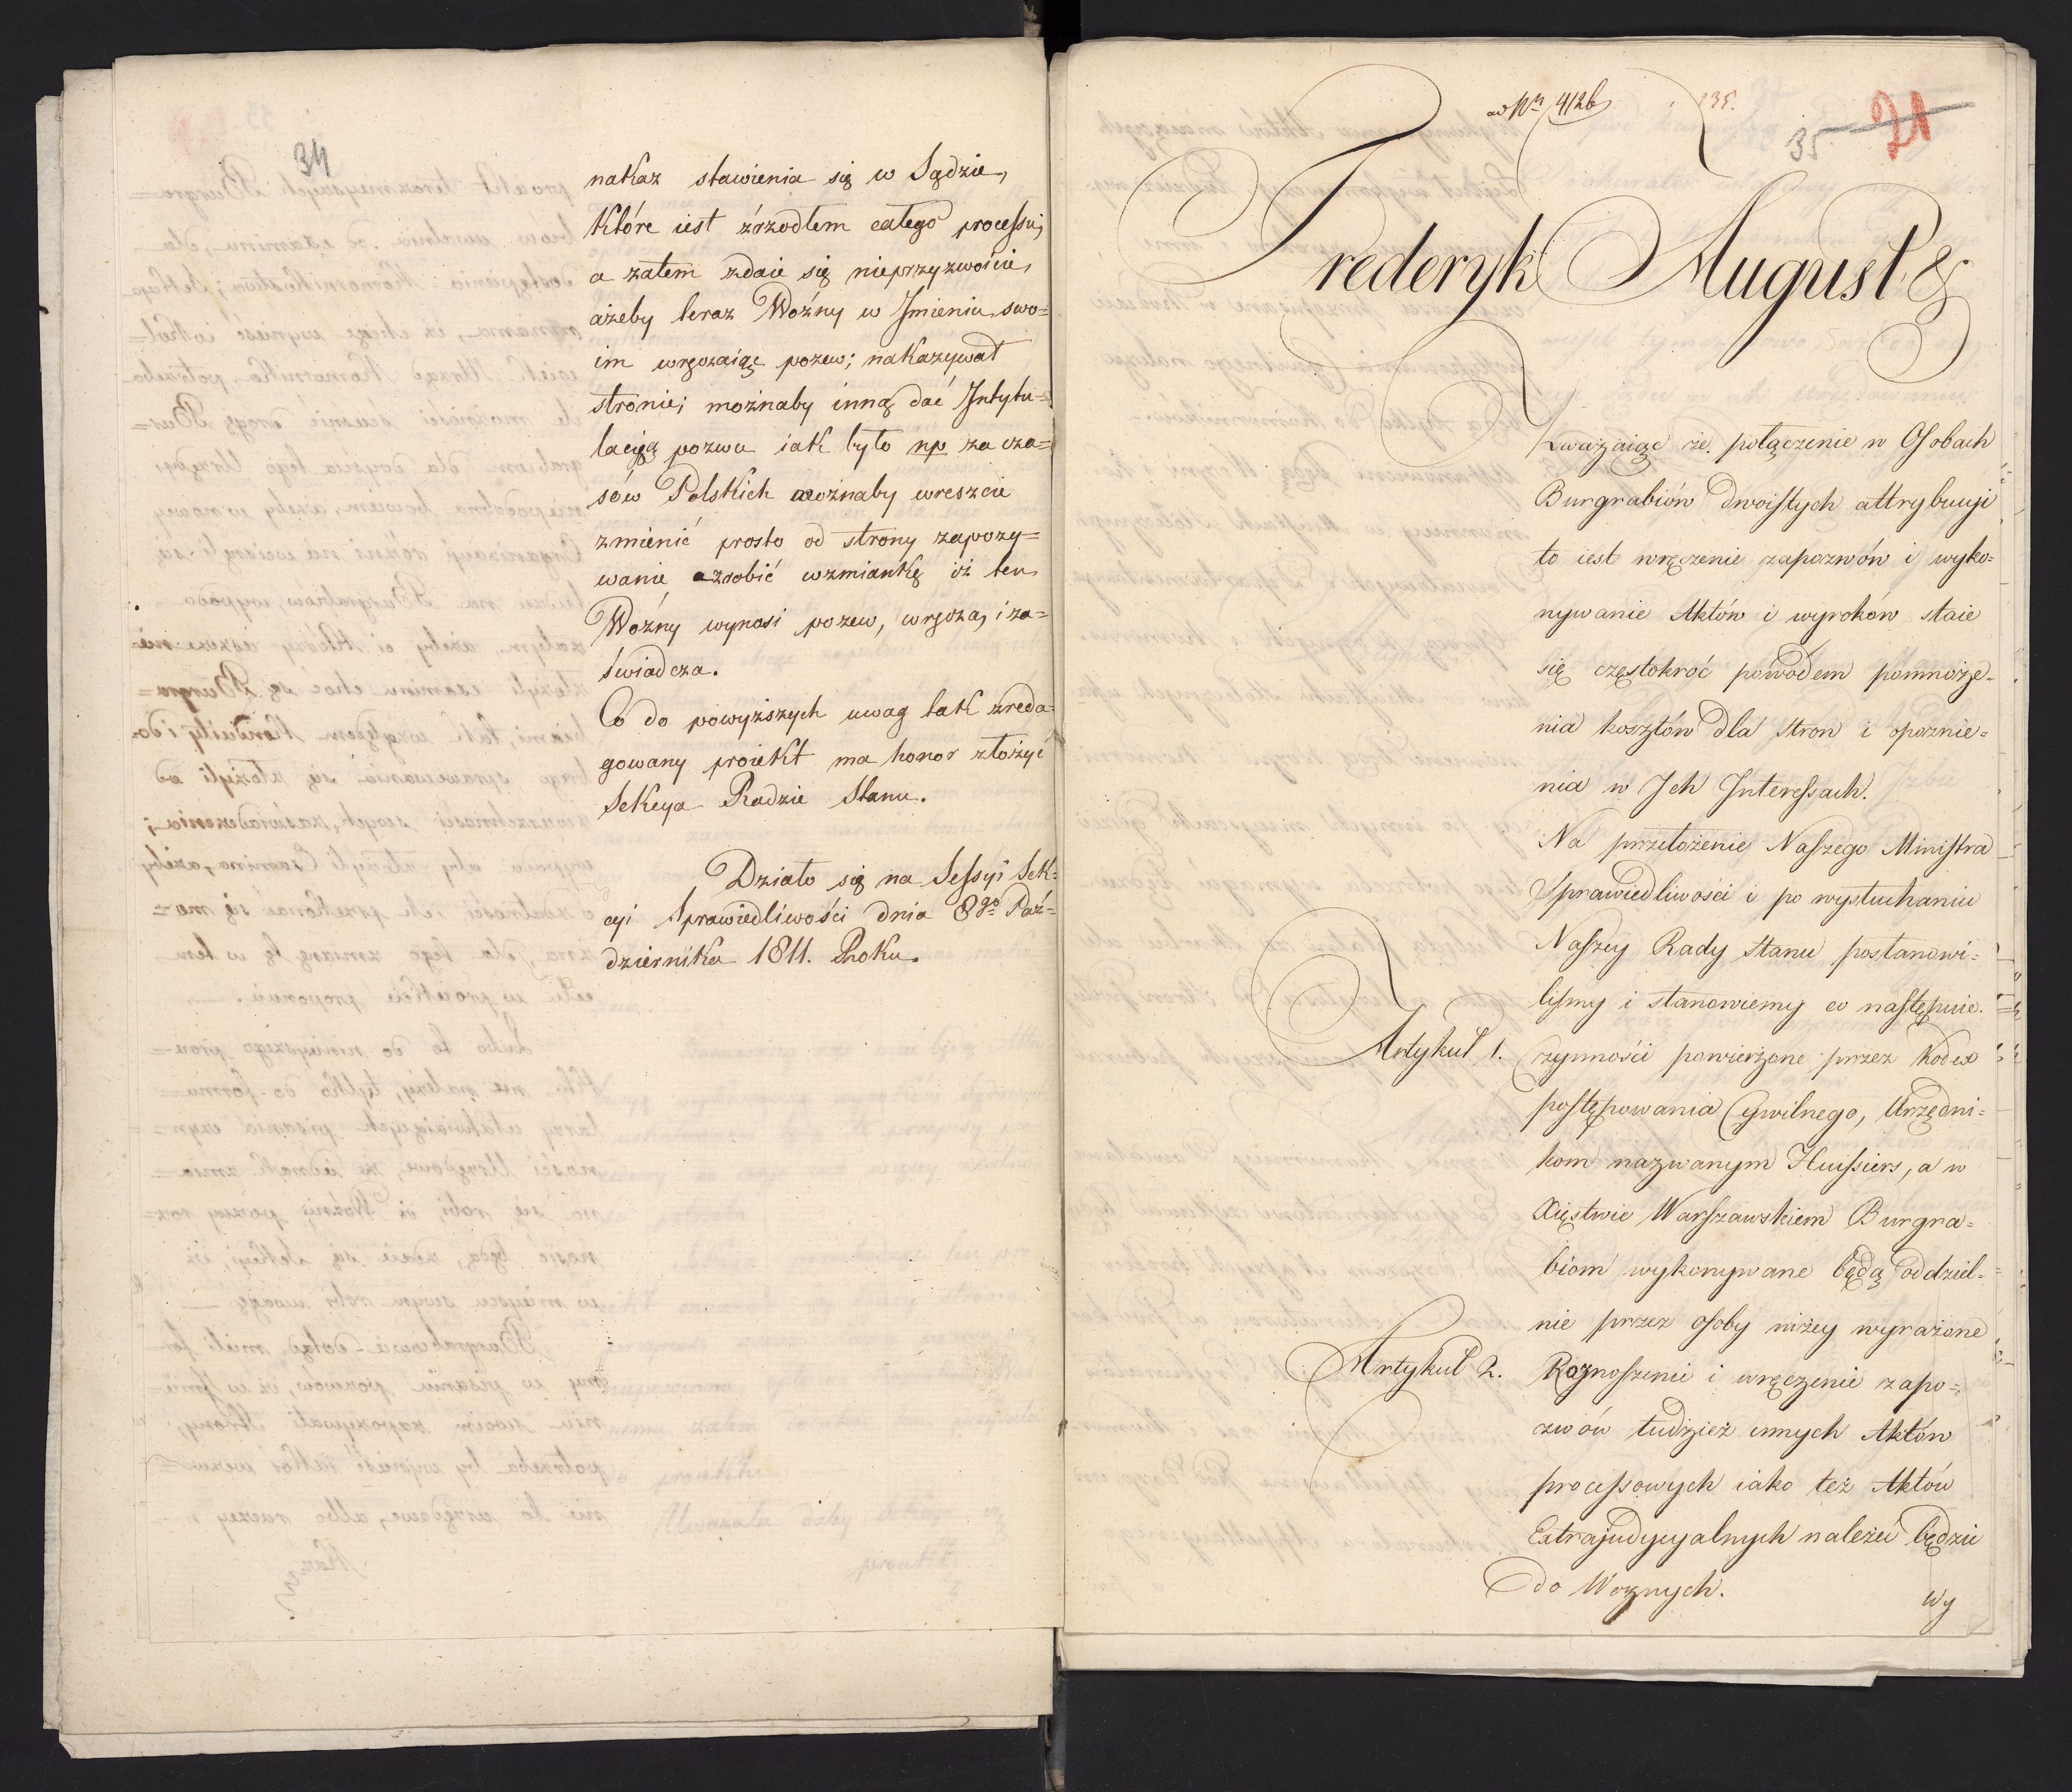 34
nakaz stawienia się w Sądzie,
które iest źrzodłem całego processu,
a zatem zdaie się nieprzyzwoicie,
ażeby teraz Woźny w Jmieniu swo=
im wręczaiąc pozew; nakazywał
stronie; możnaby inną dać Intytu=
lacyią pozwu iak było np. za cza=
sów Polskich możnaby wreszcie
zmienić prosto od strony zapozy=
wanie a zrobić wzmiankę iż ten
Woźny wynosi pozew, wręcza, i za=
świadcza.
Co do powyższych uwag tak zreda=
gowany proiekt ma honor złożyć
Sekcya Radzie Stanu.
Działo się na Sessyi Sek=
cyi Sprawiedliwości dnia 8go Paź=
dziernika 1811. Roku.
ad Nrn 412b
135.
35
21
Frederyk August &
Zważaiąc że połączenie w Osobach
Burgrabiów dwoistych attrybucyi
to iest wręczenie zapozwów i wyko=
nywanie Aktów i wyroków staie
się częstokroć powodem pomnoże=
nia kosztów dla stron i opoznie=
nia w Jch Interessach.
Na przełożenie Naszego Ministra
Sprawiedliwości i po wysłuchaniu
Naszey Rady Stanu postanowi=
liśmy i stanowiemy co następuie.
Artykuł 1. Czynności powierzone przez Kodex
postępowania Cywilnego, Urzędni=
kom nazwanym Huissiers, a w
Xięstwie Warszawskiem Burgra=
biom wykonywane będą oddziel=
nie przez osoby niżey wyrażone
Artykuł 2. Roznoszenie i wręczenie zapo=
zwów tudzież innych Aktów
processowych iako też Aktów
Extrajudycyalnych należeć będzie
do Woznych.
Wy